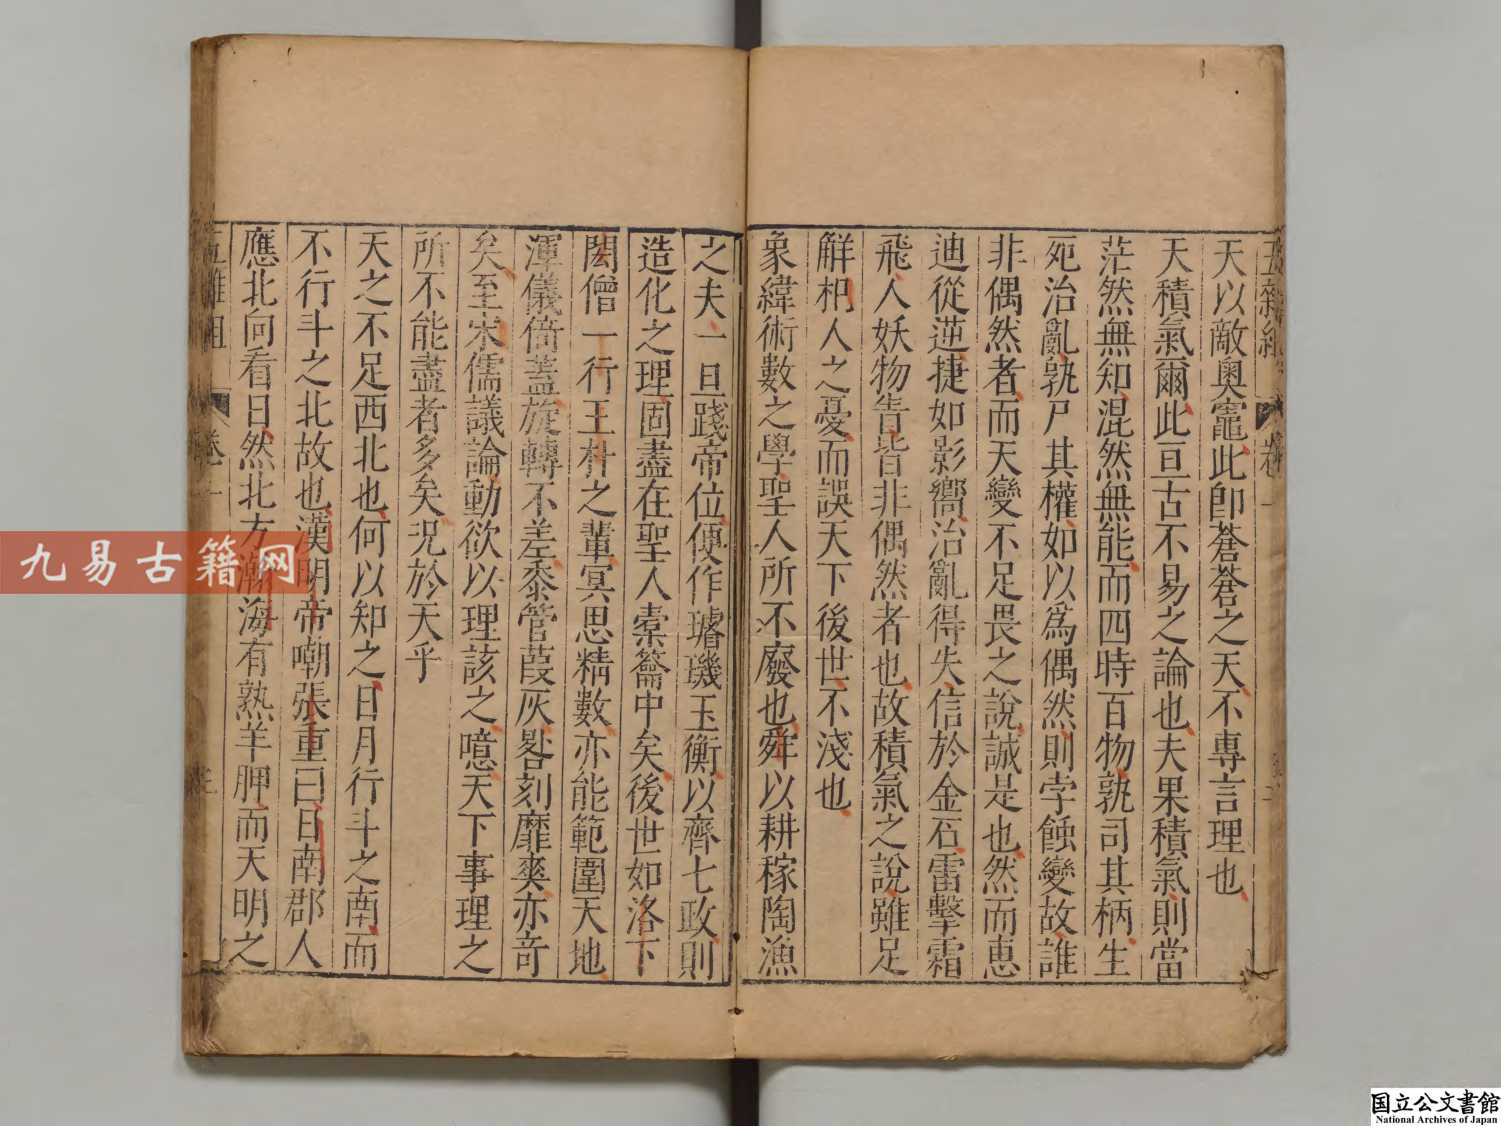 五雜組 卷一
天以敵奧竈此卽蒼蒼之天不專言理也
天積氣爾此亘古不易之論也夫果積氣則當
茫然無知混然無能而四時百物孰司其柄生
死治亂孰尸其權如以爲偶然則孛蝕變故誰
非偶然者而天變不足畏之說誠是也然而惠
迪從逆捷如影嚮治亂得失信於金石雷擊霜
飛人妖物眚皆非偶然者也故積氣之說雖足
解杞人之憂而誤天下後世不淺也
象緯術數之學聖人所不廢也舜以耕稼陶漁
之夫一旦踐帝位便作璿璣玉衡以齊七政則
造化之理固盡在聖人橐籥中矣後世如洛下
閎僧一行王朴之輩冥思精數亦能範圍天地
渾儀倚蓋旋轉不差黍管葭灰晷刻靡爽亦竒
矣至宋儒議論動欲以理該之噫天下事理之
所不能盡者多矣况於天乎
天之不足西北也何以知之日月行斗之南而
不行斗之北故也漢明帝嘲張重曰日南郡人
應北向看日然北方瀚海有熟羊胛而天明之
五雜組 卷一
九易古籍网
国立公文書館
National Archives of Japan